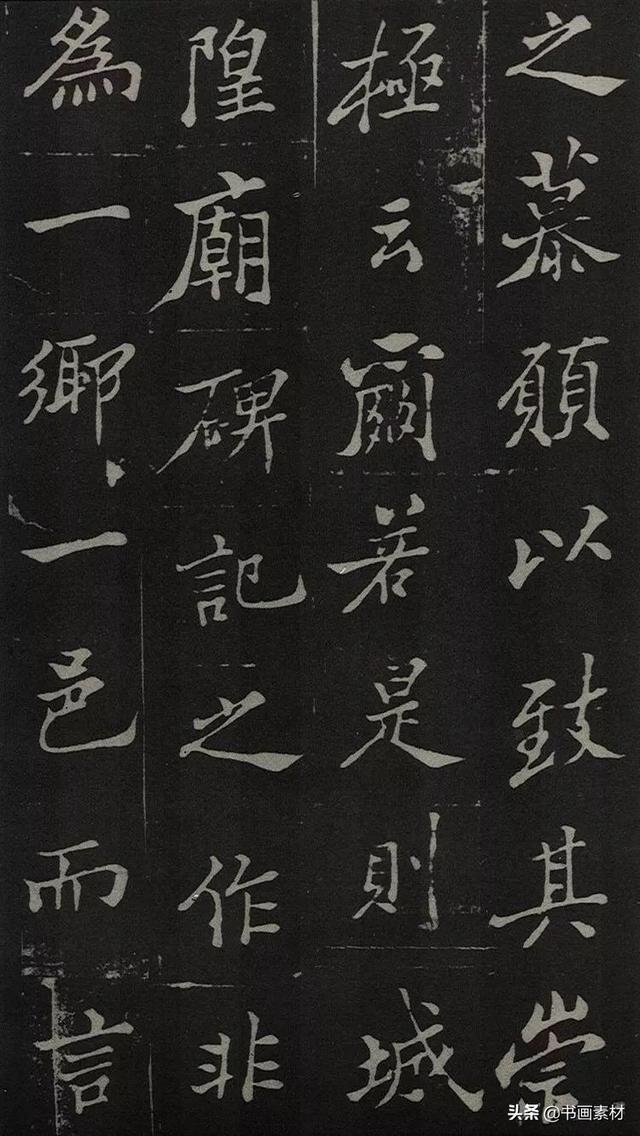 之慕願以致其崇
極云爾若是則城
隍廟碑記之作非
為一鄉一邑而言
头条 @书画素材